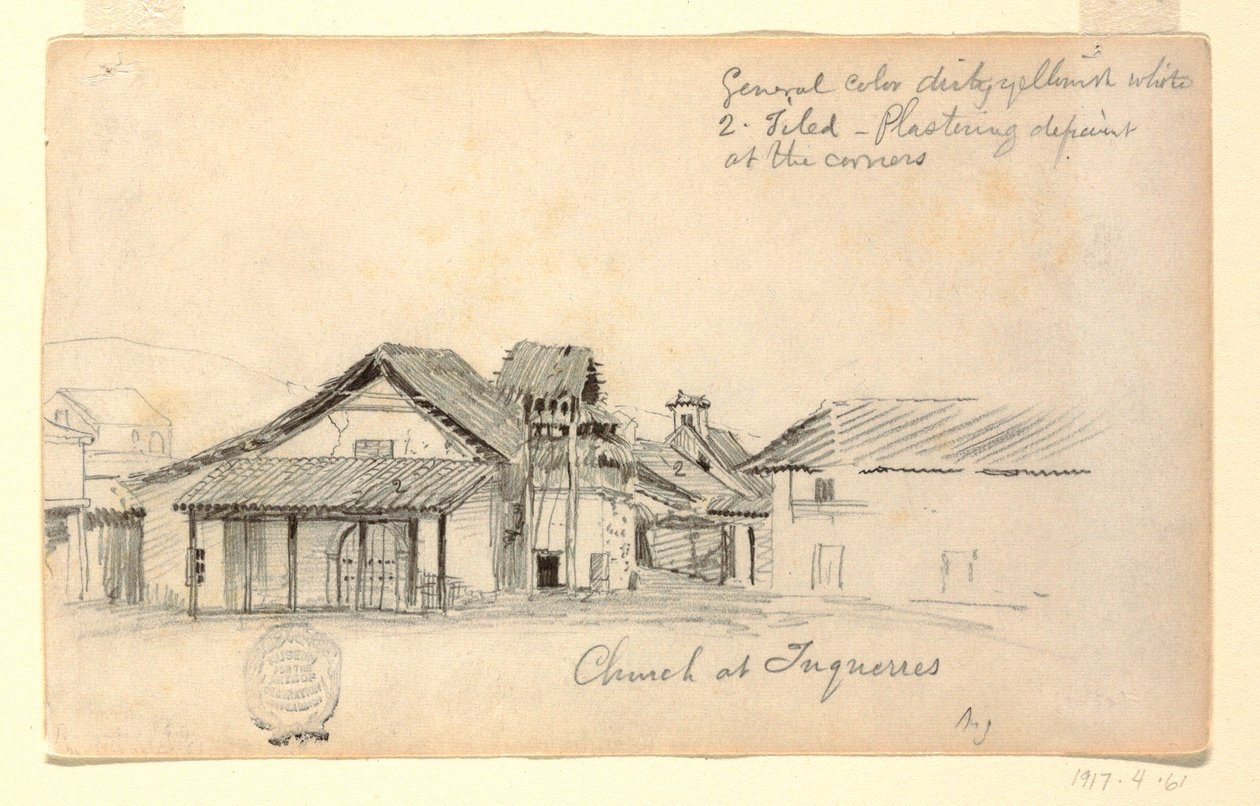 General color dirty yellowish white
2. Tiled - Plastering deficient
at the corners
2
2
Church at Tuquerres
MUSEUM
FOR THE
ARTS OF
DECORATION
Aug
1917.4.61